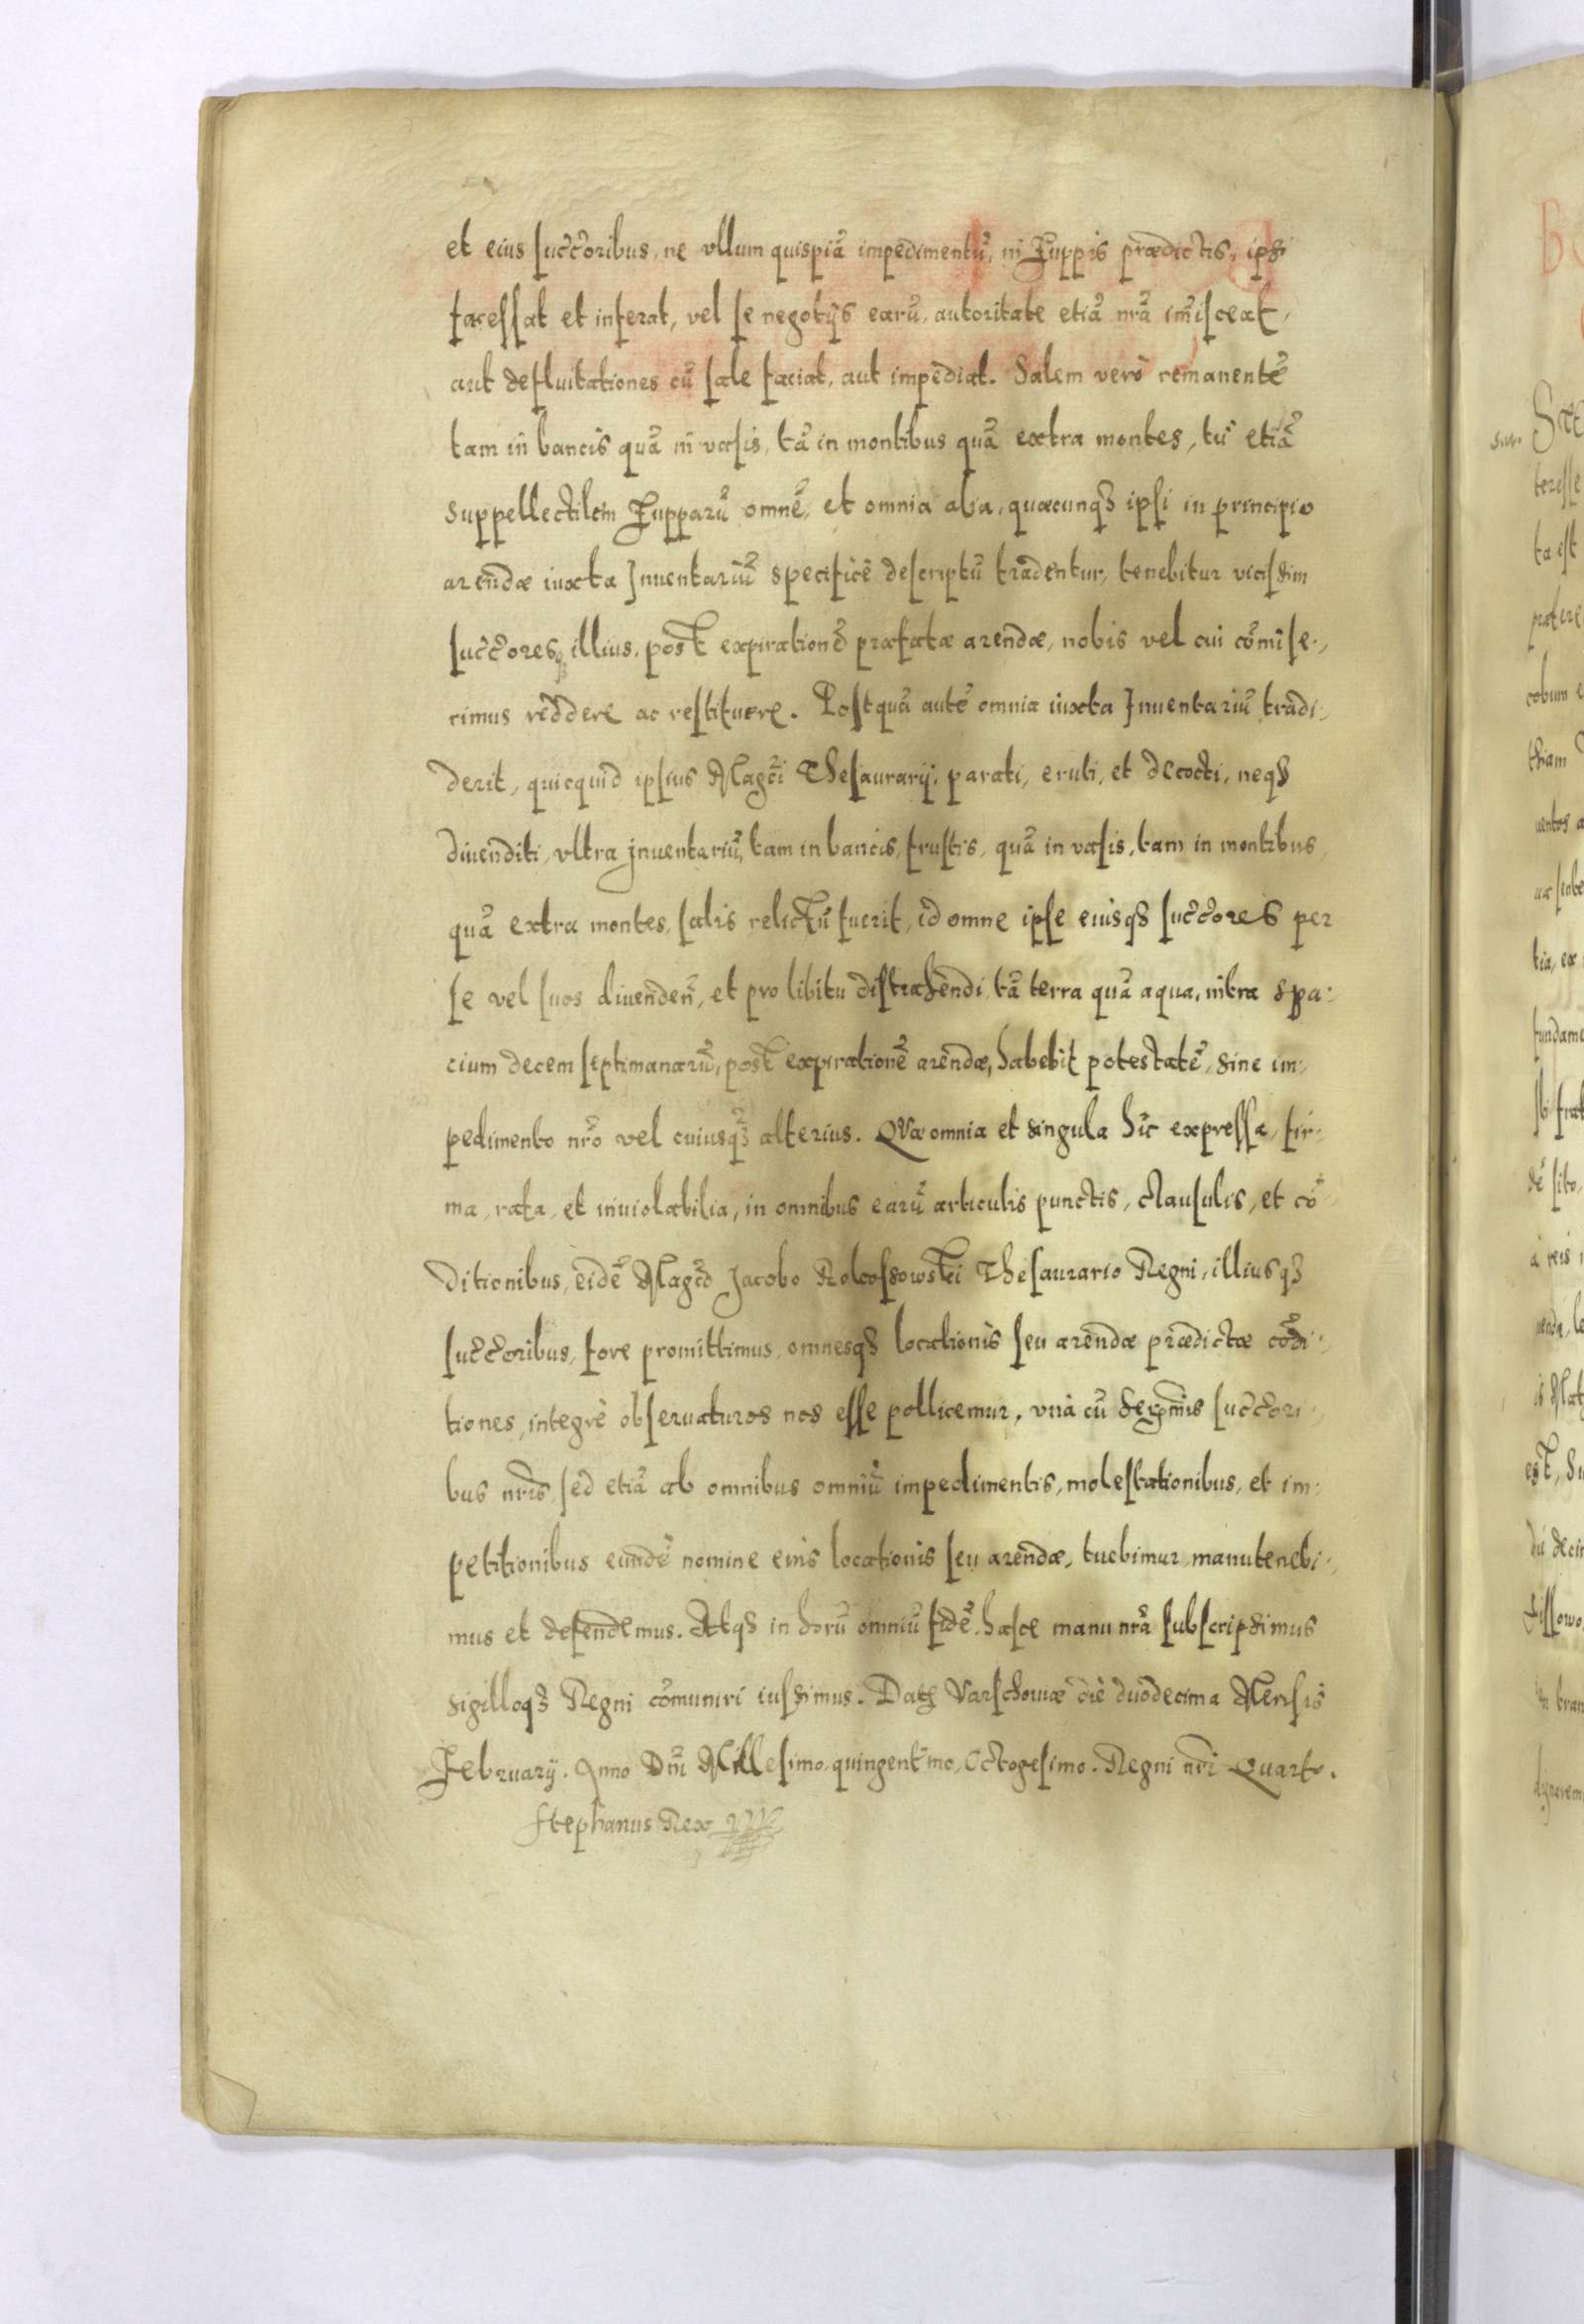 et eius succ̃oribus, ne vllum quispiã impedimentũ, in Zuppis prædictis, ipsi
facessat et inferat, vel se negotijs earũ, autoritate etiã nr̃a im̃isceat,
aut defluitationes cũ sale faciat, aut impediat. Salem verò remanentẽ
tam in bancis quã in vasis, tã in montibus quã extra montes, tũ etiã
suppellectilem Zupparũ omnẽ, et omnia alia, quæcunqꝫ ipsi in principio
arendæ iuxta Inuentariũ specificè descriptũ tradentur, tenebitur vicissim
succ̃oresqꝫ illius, post expirationẽ præfatæ arendæ, nobis vel cui cõmise-
rimus reddere ac restituere. Postquã autẽ omnia iuxta Inuentariũ tradi-
derit, quicquid ipsius Magc̃i Thesaurarij, parati, eruti, et decocti, neqꝫ
diuenditi, vltra inuentariũ, tam in bancis, frustis, quã in vasis, tam in montibus,
quã extra montes, salis relictũ fuerit, id omne ipse eiusqꝫ succ̃ores per
se vel suos diuenden̄, et pro libitu distrahendi, tã terra quã aqua, intra spa-
cium decem septimanarũ, post expirationẽ arendæ, habebit potestatẽ, sine im-
pedimento nr̃o vel cuiusqꝫ alterius. Quæ omnia et singula hic expressa, fir-
ma, rata, et inuiolabilia, in omnibus earũ articulis punctis, clausulis, et cõ-
ditionibus, eidẽ Magc̃o Jacobo Rokossowski Thesaurario Regni, illiusqꝫ
succ̃oribus, fore promittimus, omnesqꝫ locationis seu arendæ prædictæ cõdi-
tiones, integrè obseruaturos nos esse pollicemur, vnà cũ Serenmis succ̃ori-
bus nr̃is, sed etiã ab omnibus omniũ impedimentis, molestationibus, et im-
petitionibus eundẽ nomine eius locationis seu arendæ, tuebimur, manutenebi-
mus et defendemus. Atqꝫ in horũ omniũ fidẽ, hasce manu nr̃a subscripsimus
sigilloqꝫ Regni cõmuniri iussimus. Datꝫ Varschouiæ die duodecima Mensis
February. Anno Dñi Millesimo, quingentmo, Octogesimo. Regni nr̃i Quarto.
Stephanus Rex